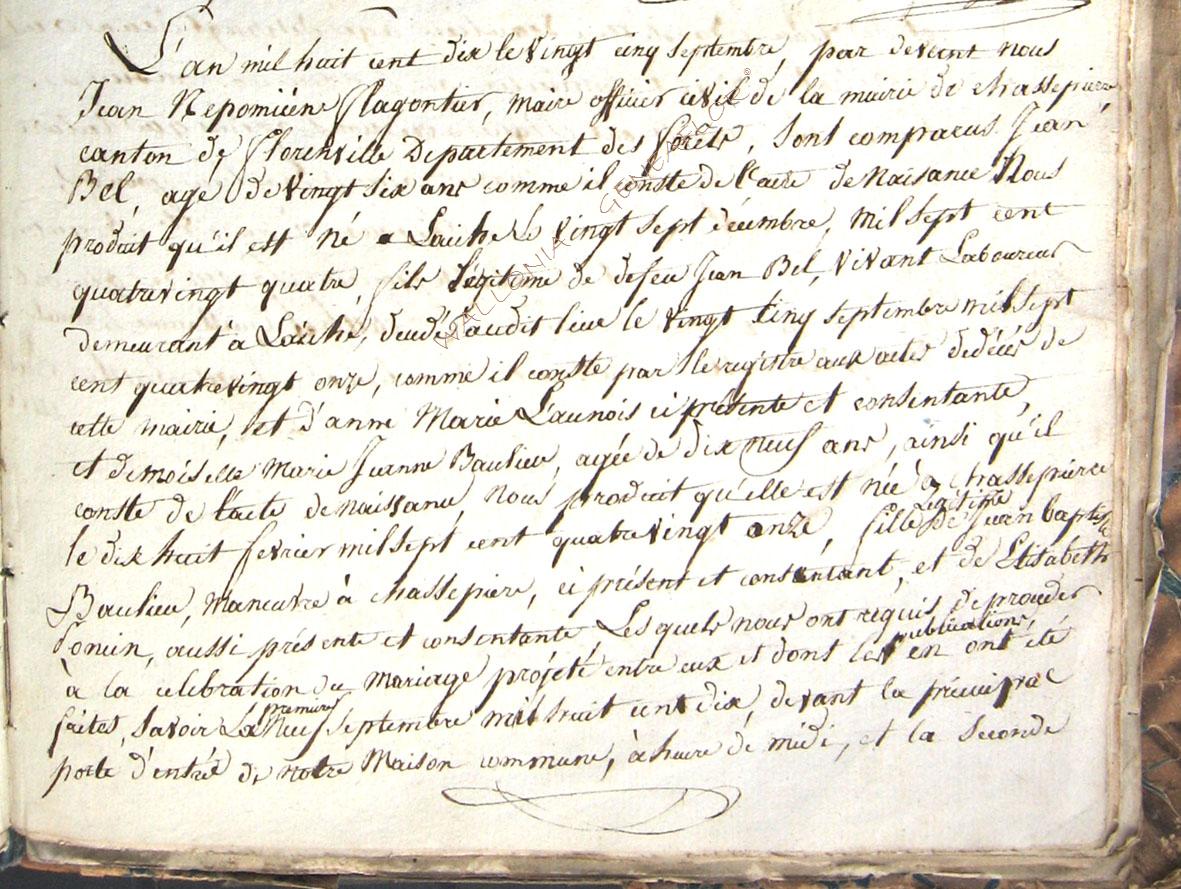 L'an mil huit cent dix le vingt cinq septembre, par devant nous
Jean Nepomucene Flagontier, maire officier civil de la mairie de chassepierre
canton de Florenville Departement des forêts, sont comparus Jean
Bel, agé de vingt six ans comme il conste de l'acte de Naisance Nous
produit qu'il est né a Laiche le vingt sept décembre, mil sept cent
quatrevingt quatre, fils légitime de defeu Jean Bel, vivant Laboureur
demeurant à Laiche, décédé audit lieu le vingt cinq septembre mil sept
cent quatrevingt onze, comme il conste par le registre aux actes de décès de
cette mairie, et d'anne Marie Launois ci présente et consentante,
et demoiselle Marie Jeanne Baulieu, agée de dix neuf ans, ainsi qu'il
conste de l'acte de naissance, nous produit qu'elle est née à chassepierre
le dix huit fevrier mil sept cent quatrevingt onze, fille Legitime de Jean baptiste
Baulieu, maneuvre à chassepierre, ci présent et consentant, et de Elisabeth
aussi présente et consentante, Les quels nous ont requis de proceder
à la celebration du Mariage projété entre eux et dont les publications, en ont été
faites, savoir La premiere neuf septembre mil huit cent dix, devant la principale
porte d'entré de notre Maison commune, à heure de midi, et la seconde
WALLONIA GENEALOGIE